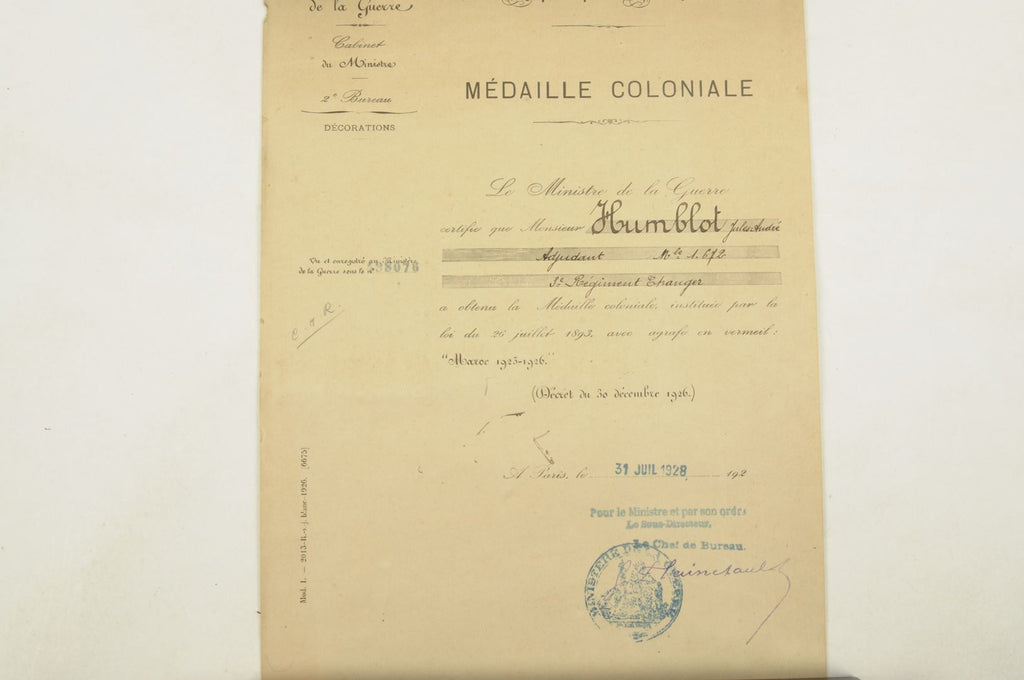 de la Guerre
Cabinet
du Ministre
2e Bureau
DÉCORATIONS
MÉDAILLE COLONIALE
Le Ministre de la Guerre
certifie que Monsieur Humblot Jules André
Adjudant Mle 1.672
3e Régiment Etranger
Vu et enregistré au Ministère
de la Guerre sous le No 98076
a obtenu la Médaille coloniale, instituée par la
loi du 26 juillet 1893, avec agrafe en vermeil :
"Maroc 1925-1926."
(Décret du 30 décembre 1926.)
A Paris, le 31 JUIL 1928 192
Pour le Ministre et par son ordre
Le Sous-Directeur,
Le Chef de Bureau.
MINISTÈRE DE LA GUERRE
Mod. 1. — 2013-R.-s.-j. blanc-1926. [6675]